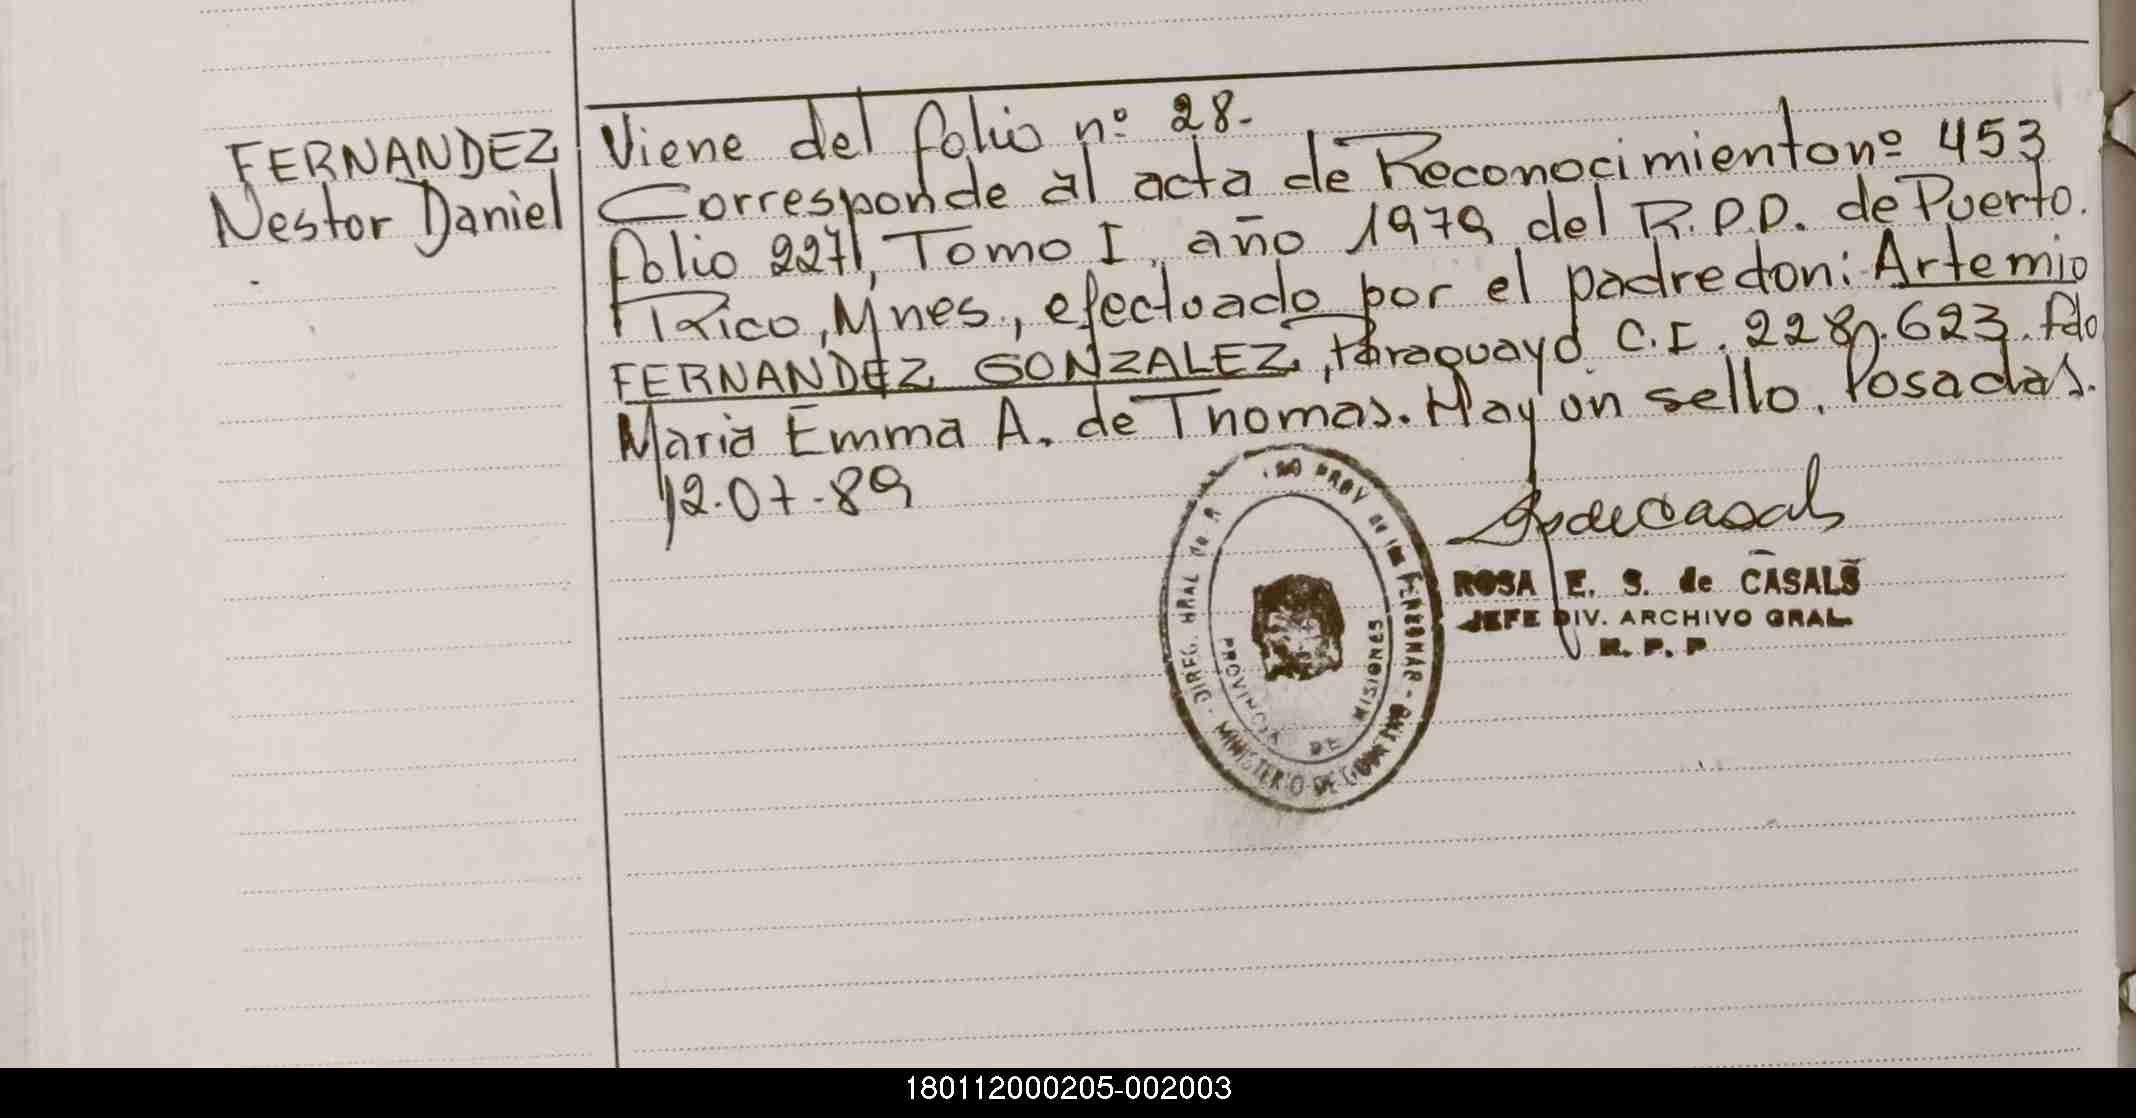 FERNANDEZ
Nestor Daniel
Viene del folio nº 28.-
Corresponde al acta de Reconocimiento nº 453
folio 227, Tomo I, año 1979 del R.P.P. de Puerto.
Rico, Mnes., efectuado por el padre don: Artemio
FERNANDEZ GONZALEZ, Paraguayo C.I. 228.623. fdo
Maria Emma A. de Thomas. Hay un sello. Posadas.
12.07.89
ROSA E. S. de CASALS
JEFE DIV. ARCHIVO GRAL
R. P. P
DIREC. GRAL de PROV de las PERSONAS - MINISTERIO DE
PROVINCIA DE MISIONES
180112000205-002003